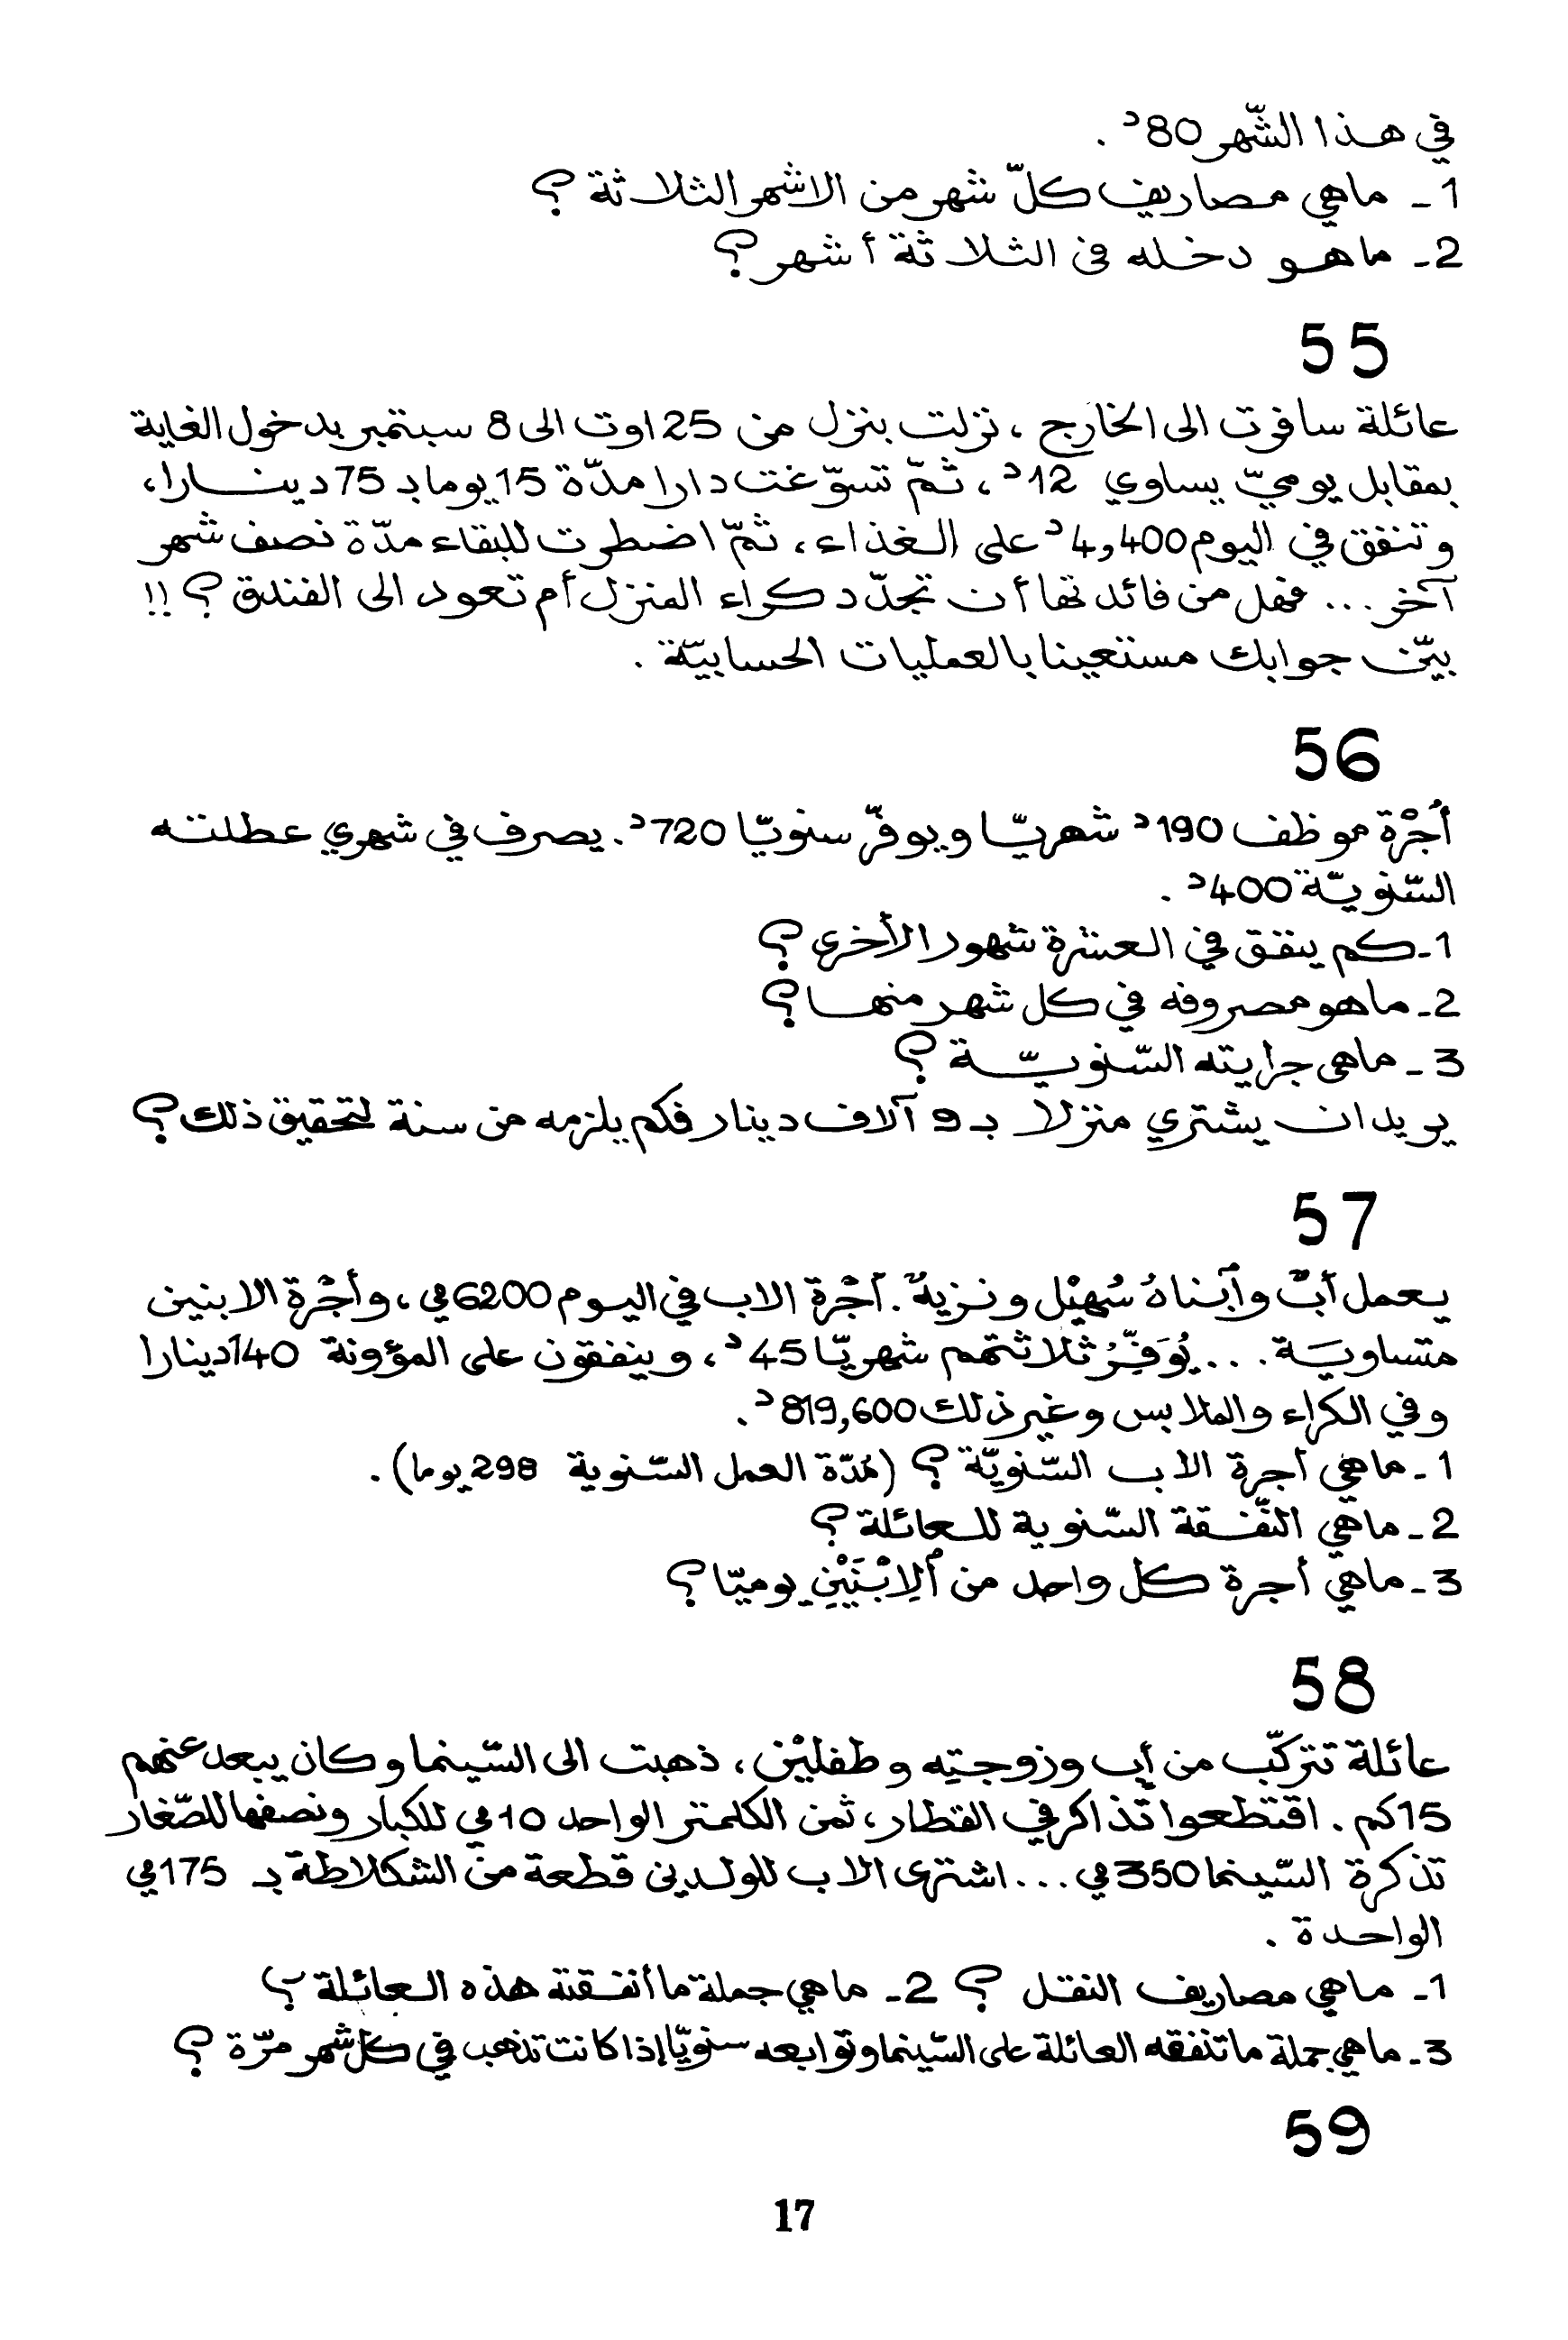 في هذا الشّهر 80د .
1 - ماهي مصاريف كلّ شهر من الاشهر الثلاثة ؟
2 - ماهو دخله في الثلاثة أشهر ؟
55
عائلة سافرت الى الخارج ، نزلت بنزل من 25 اوت الى 8 سبتمبر بدخول الغاية
بمقابل يوميّ يساوي 12د ، ثمّ تسوّغت دارا مدّة 15 يوما بـ 75 دينارا،
وتنفق في اليوم 4,400د على الغذاء ، ثمّ اضطرت للبقاء مدّة نصف شهر
آخر ... فهل من فائدتها أن تجدّد كراء المنزل أم تعود الى الفندق ؟ !!
بيّن جوابك مستعينا بالعمليات الحسابيّة .
56
أُجْرَة موظف 190د شهريّا ويوفّر سنويّا 720د. يصرف في شهري عطلته
السّنويّة 400د .
1- كم ينفق في العشرة شهور الأخرى ؟
2- ماهو مصروفه في كل شهر منها ؟
3 - ماهي جرايته السّنويّة ؟
يريد ان يشتري منزلا بـ 9 آلاف دينار فكم يلزمه من سنة لتحقيق ذلك ؟
57
يعمل أبٌ وآبناهُ سُهيْل ونزيهٌ. أجْرة الاب في اليوم 6200 مي ، وأجْرة الابنين
متساويَة. .. يُوَفِّرُ ثلاثتهم شهريّا 45د ، وينفقون على المؤونة 140 دينارا
وفي الكراء والملابس وغير ذلك 819,600د .
1 - ماهي أجرة الاب السّنويّة ؟ (مُدّة العمل السّنوية 298 يوما) .
2 - ماهي النّفقة السّنوية للعائلة ؟
3 - ماهي أجرة كل واحد من ٱلِابْنَيْنِ يوميّا ؟
58
عائلة تتركّب من أب وزوجتِه وطفليْن ، ذهبت الى السّينما وكان يبعد عنهم
15 كم . اقتطعوا تذاكر في القطار ، ثمن الكلمتر الواحد 10 مي للكبار ونصفها للصّغار
تذكرة السّينما 350 مي ... اشترى الاب للولدين قطعة من الشكلاطة بـ 175 مي
الواحدة .
1 - ماهي مصاريف النقل ؟ 2 - ماهي جملة ما أنفقته هذه العائلة ؟
3 - ماهي جملة ما تنفقه العائلة على السّينما وتوابعه سنويّا إذا كانت تذهب في كلّ شهر مرّة ؟
59
17